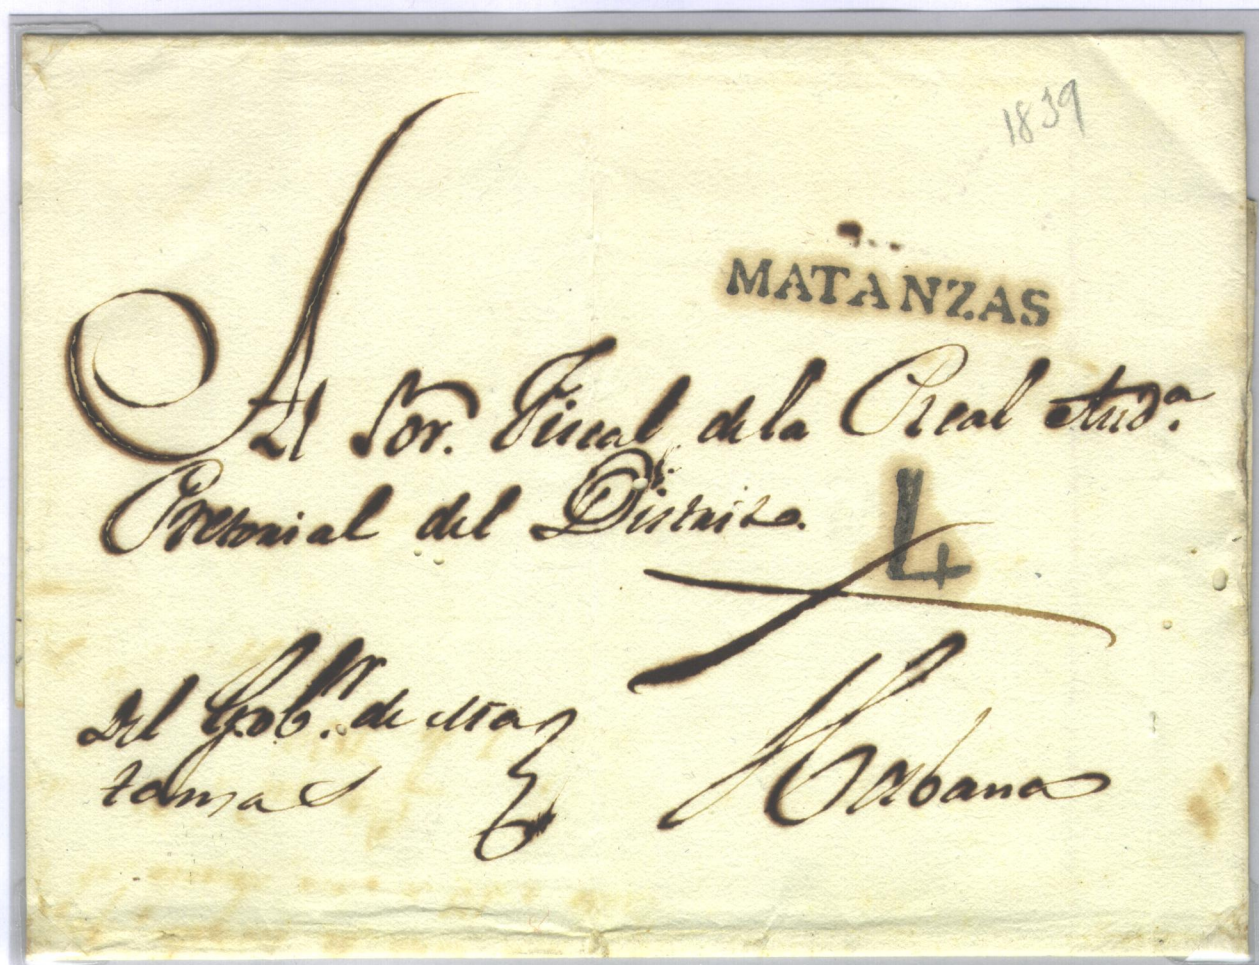 1839
MATANZAS
Al Sor. Fiscal de la Real Auda.
Pretorial del Distrito.
4
Del Gobr. de Ma
tanzas
Habana